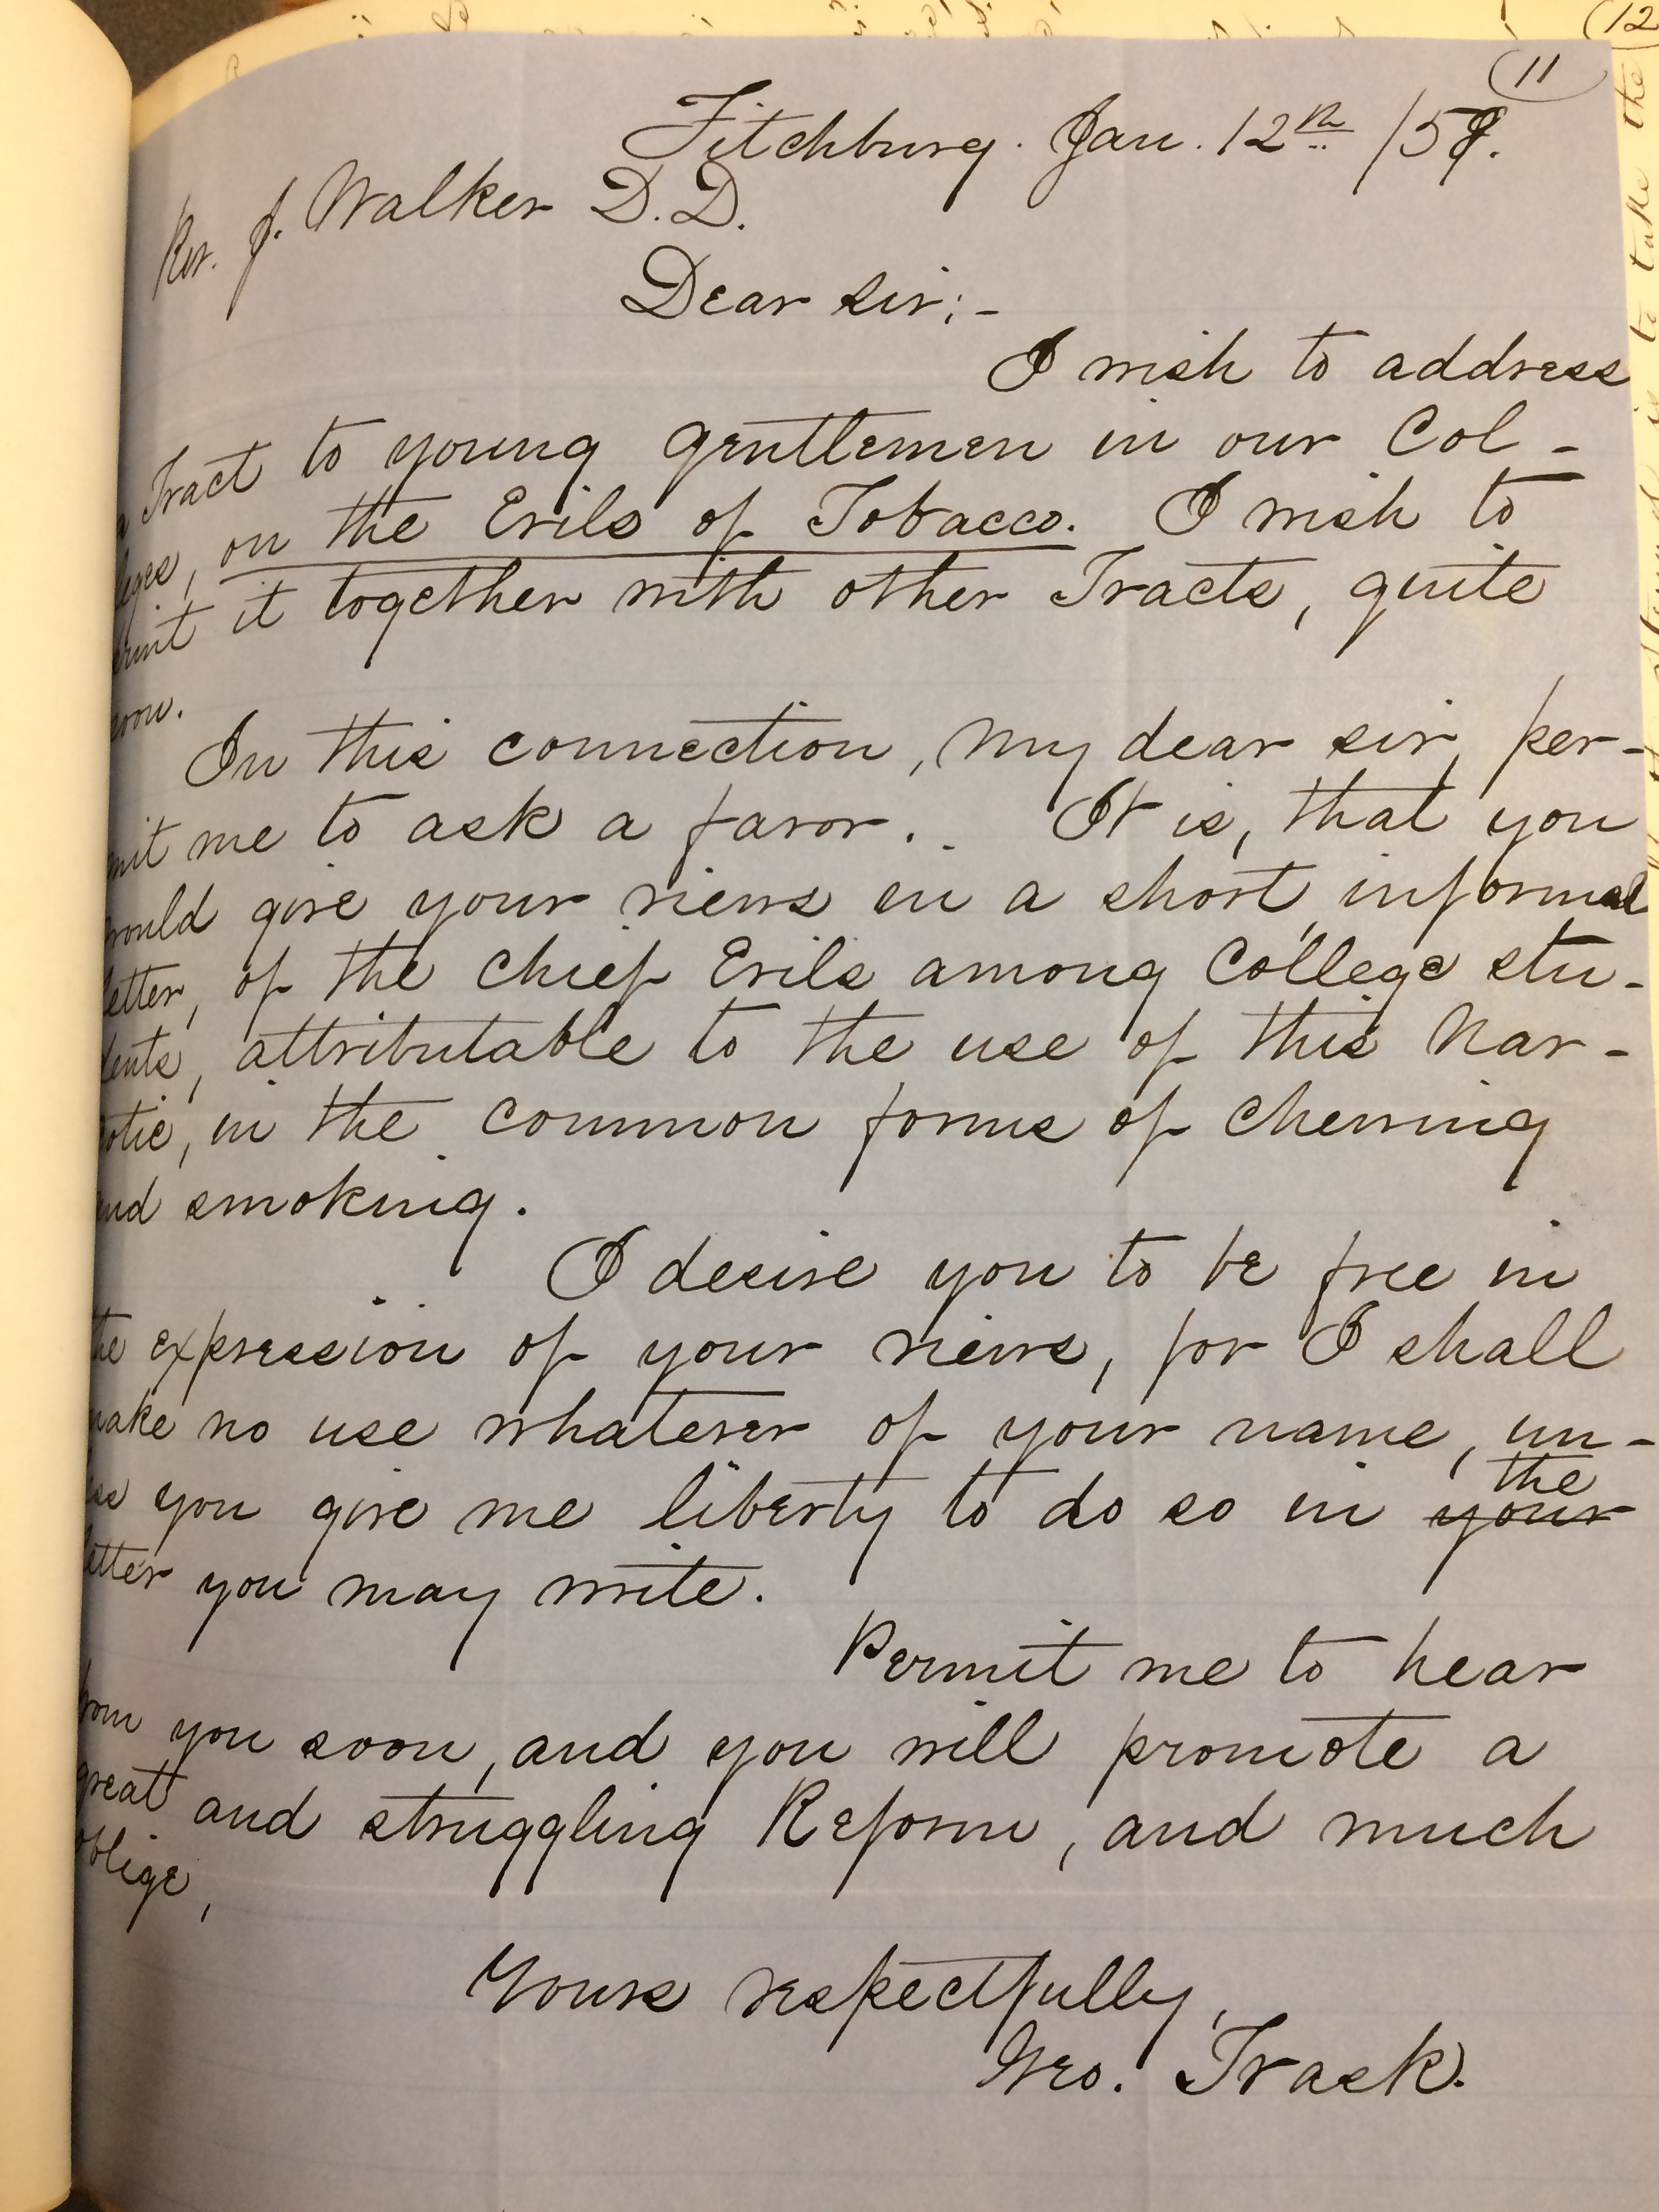 (11)
Fitchburg. Jan. 12th /59.
Rev. J. Walker D.D.
Dear sir;-
I wish to address
a Tract to young gentlemen in our Col-
leges, on the Evils of Tobacco. I wish to
print it together with other Tracts, quite
soon.
In this connection, my dear sir, per-
mit me to ask a favor. It is, that you
would give your views in a short, informal
letter, of the chief Evils among College stu-
dents, attributable to the use of this Nar-
cotic, in the common forms of chewing
and smoking.
I desire you to be free in
the expression of your views, for I shall
make no use whatever of your name, un-
less you give me liberty to do so in your the
letter you may write.
Permit me to hear
from you soon, and you will promote a
great and struggling Reform, and much
oblige,
Yours respectfully,
Geo. Trask.
(12
is to take the